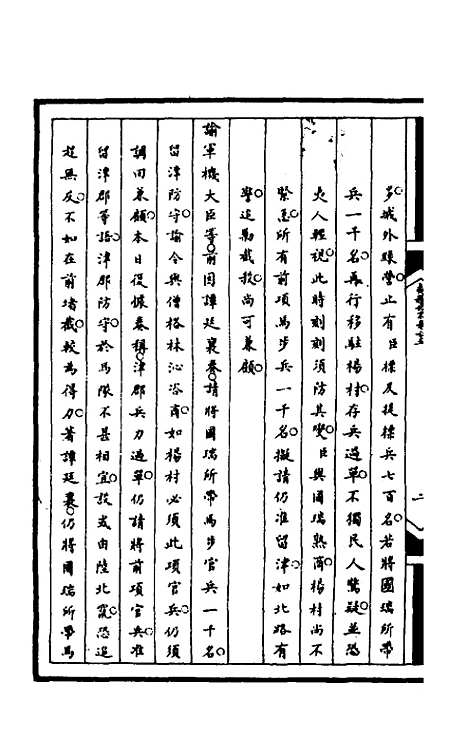 多城外緑營止有臣標及提標兵七百名若將國瑞所帶
兵一千名再行移駐楊村存兵過單不獨民人驚疑並恐
夷人輕視此時刻刻須防其變臣與國瑞熟商楊村尚不
緊急所有前項馬步兵一千名擬請仍准留津如北路有
警追勦截救尚可兼顧
諭軍機大臣等前因譚廷襄奏請將國瑞所帶馬步官兵一千名
留津防守諭令與僧格林沁咨商如楊村必須此項官兵仍須
調回兼顧本日復據奏稱津郡兵力過單仍請將前項官兵准
留津郡等語津郡防守於馬隊不甚相宜設或由陸北竄恐追
趕無及不如在前堵截較為得力著譚廷襄仍將國瑞所帶馬